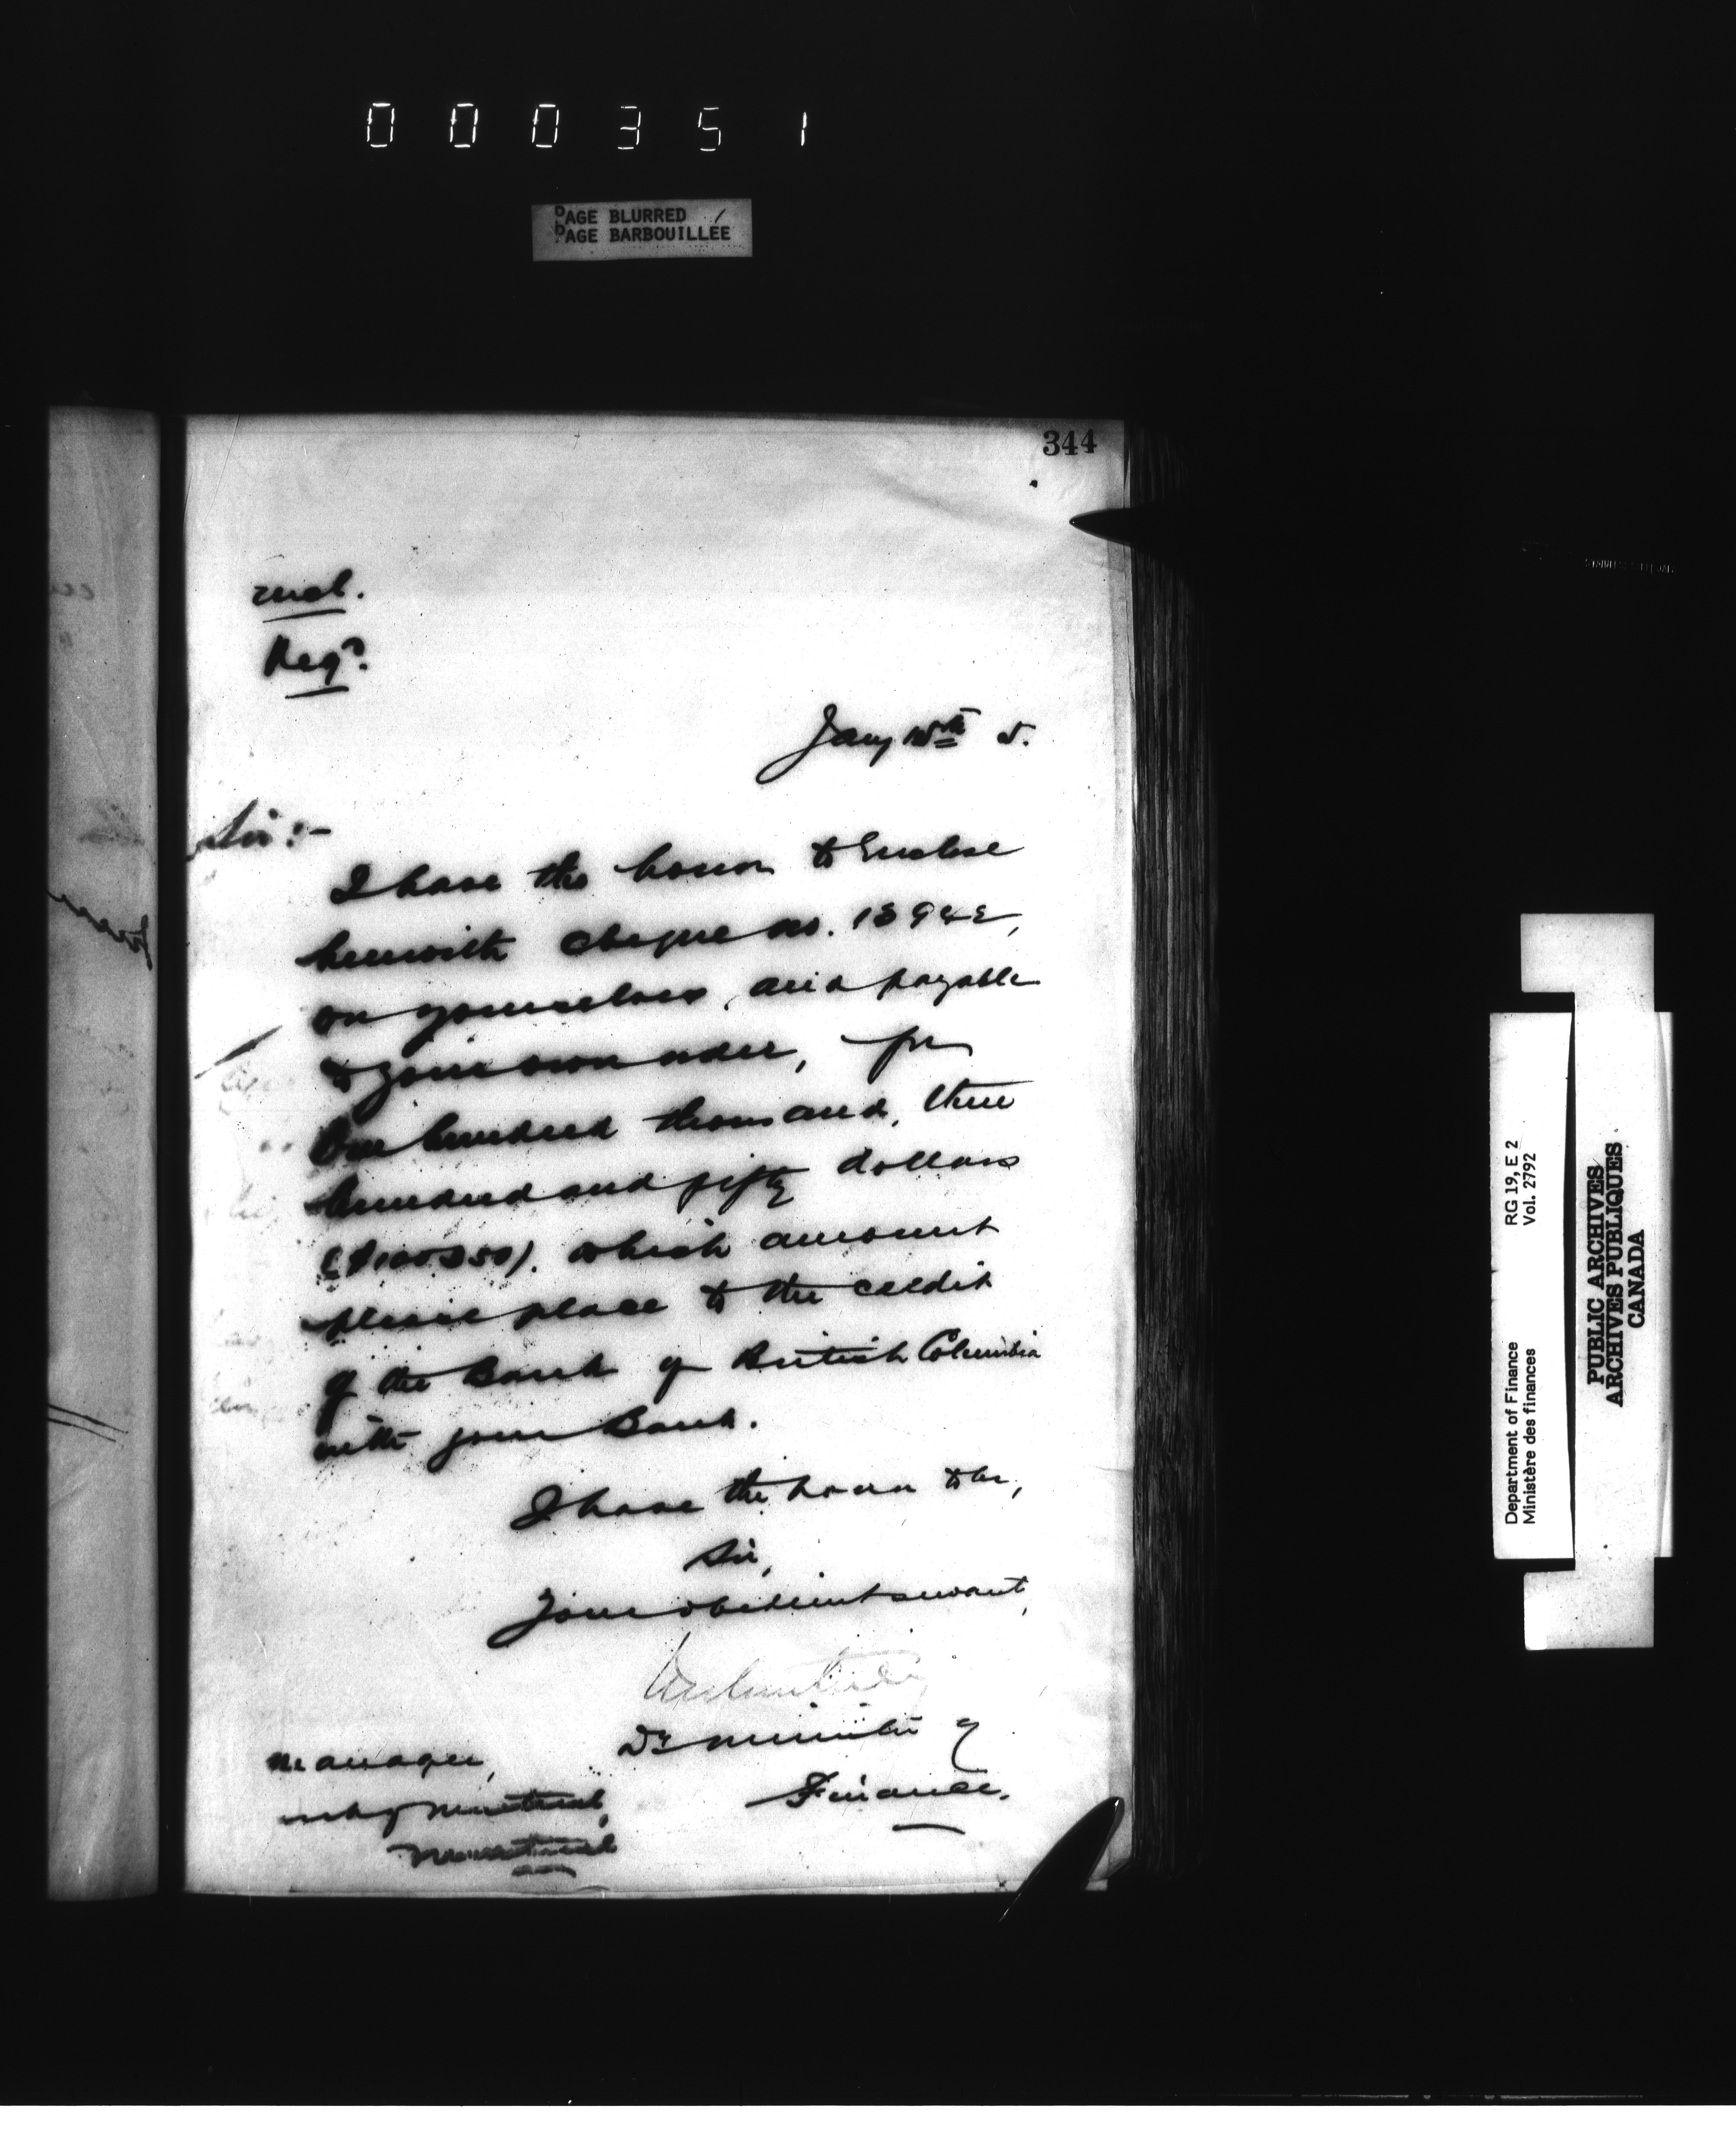 000351
PAGE BLURRED
PAGE BARBOUILLÉE
344
encl.
Regd.
Jany 15th 5.
Sir:-
I have the honor to Enclose
herewith cheque no.
on yourselves, and payable
to your own order, for
One hundred thousand, three
hundred and fifty dollars
($100350). which amount
please place to the credit
of the Bank of British Columbia
with your Bank.
I have the honor to be,
Sir,
Your obedient servant,
Dy minister of
Finance.
Manager,
of Montreal,
Montreal
Department of Finance RG 19, E 2
Ministère des finances Vol. 2792
PUBLIC ARCHIVES
ARCHIVES PUBLIQUES
CANADA